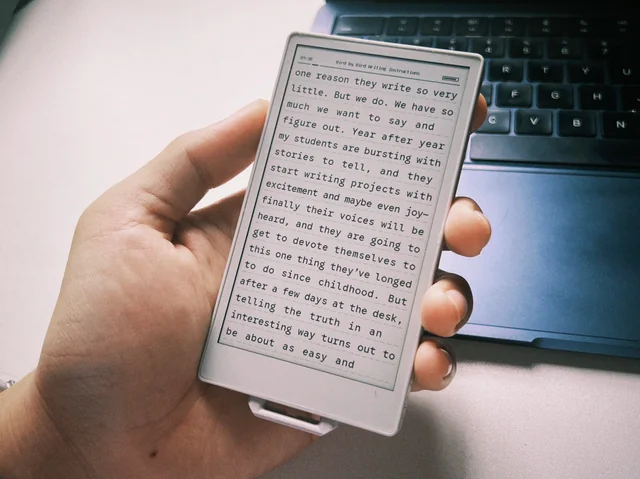 Bird by Bird Writing Instructions
one reason they write so very
little. But we do. We have so
much we want to say and
figure out. Year after year
my students are bursting with
stories to tell, and they
start writing projects with
excitement and maybe even joy—
finally their voices will be
heard, and they are going to
get to devote themselves to
this one thing they've longed
to do since childhood. But
after a few days at the desk,
telling the truth in an
interesting way turns out to
be about as easy and
R T Y
F G H
C V B N